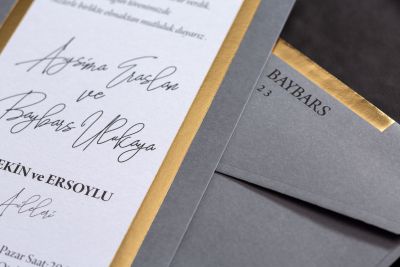 törenimizde
birlikte olmaktan mutluluk duyarız.
Aysima Eraslan
ve
Baybars Ulukaya
EKİN ve ERSOYLU
Aileleri
Pazar Saat:20
BAYBARS
2 3